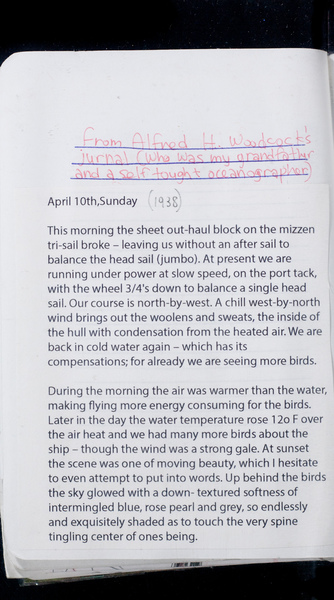 From Alfred H. Woodcock's
jurnal (who was my grandfathur
and a self tought oceanographer)
April 10th,Sunday (1938)
This morning the sheet out-haul block on the mizzen
tri-sail broke – leaving us without an after sail to
balance the head sail (jumbo). At present we are
running under power at slow speed, on the port tack,
with the wheel 3/4's down to balance a single head
sail. Our course is north-by-west. A chill west-by-north
wind brings out the woolens and sweats, the inside of
the hull with condensation from the heated air. We are
back in cold water again – which has its
compensations; for already we are seeing more birds.
During the morning the air was warmer than the water,
making flying more energy consuming for the birds.
Later in the day the water temperature rose 12o F over
the air heat and we had many more birds about the
ship – though the wind was a strong gale. At sunset
the scene was one of moving beauty, which I hesitate
to even attempt to put into words. Up behind the birds
the sky glowed with a down- textured softness of
intermingled blue, rose pearl and grey, so endlessly
and exquisitely shaded as to touch the very spine
tingling center of ones being.